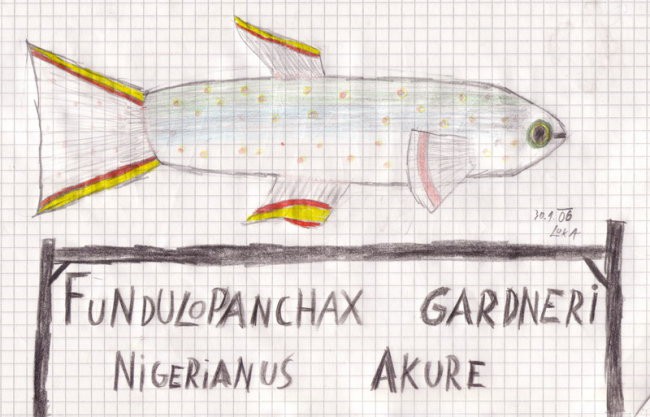 LUKA
FUNDULOPANCHAX GARDNERI
NIGERIANUS AKURE